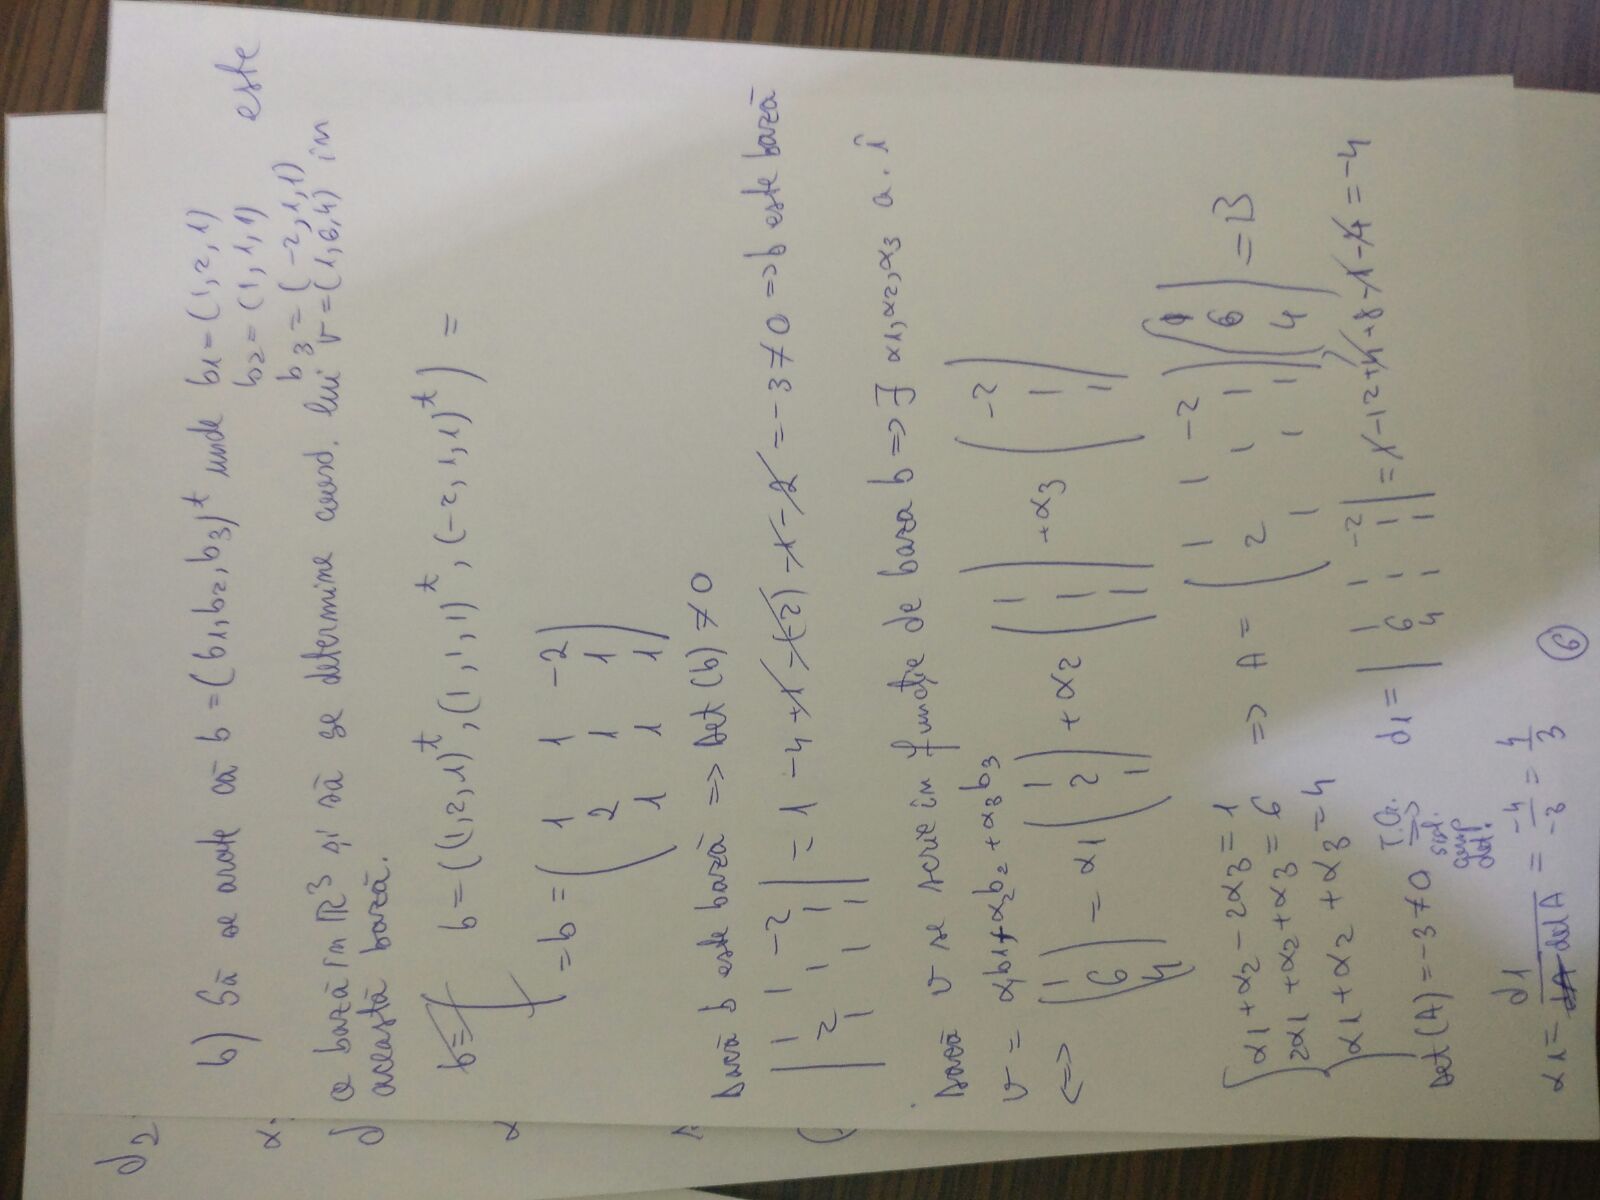 b) Să se arate că b = (b1, b2, b3)^t unde b1 = (1, 2, 1)
b2 = (1, 1, 1) este
b3 = (-2, 1, 1)
o bază în ℝ^3 și să se determine coord. lui v = (1, 6, 4) în
această bază.
b = ((1, 2, 1)^t, (1, 1, 1)^t, (-2, 1, 1)^t) =
= b = ( 1 1 -2
2 1 1
1 1 1 )
Dacă b este bază => Det (b) ≠ 0
| 1 1 -2
2 1 1
1 1 1 | = 1 - 4 + 1 - (-2) - 1 - 2 = -3 ≠ 0 => b este bază
Dacă v se scrie în funcție de baza b => ∃ α1, α2, α3 a. î
v = α1b1 + α2b2 + α3b3
<=> ( 1 6 4 ) = α1 ( 1 2 1 ) + α2 ( 1 1 1 ) + α3 ( -2 1 1 )
{ α1 + α2 - 2α3 = 1
2α1 + α2 + α3 = 6
α1 + α2 + α3 = 4
=> A = ( 1 1 -2
2 1 1
1 1 1 ) ( 1 6 4 ) = B
Det (A) = -3 ≠ 0 T.Cr. =>
sist.
comp
det.
d1 = | 1 1 -2
6 1 1
4 1 1 | = 1 - 12 + 4 + 8 - 1 - 4 = -4
α1 = d1 / det A = -4 / -3 = 4 / 3
6
d2
α
d
α